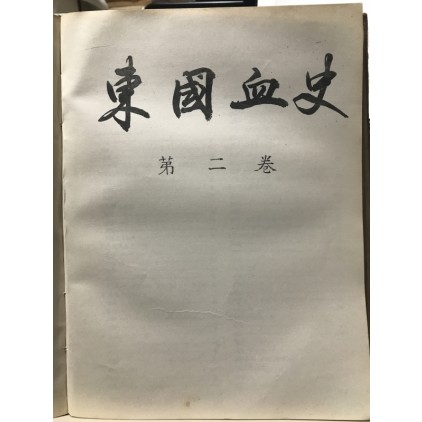 東國血史
第二卷